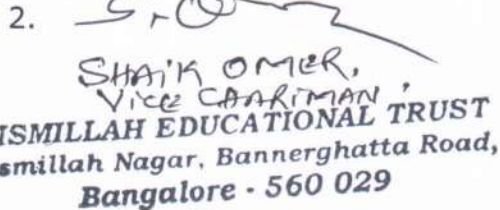 2.
SHAIK OMER,
VICE CAARIMAN,
ISMILLAH EDUCATIONAL TRUST
smillah Nagar, Bannerghatta Road,
Bangalore - 560 029